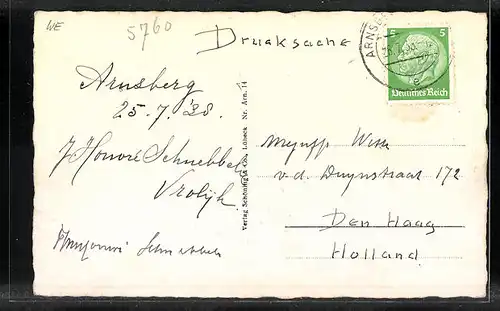 WE
5760
Drucksache
ARNSBE
5 5
Deutsches Reich
Arnsberg
25.7.'38.
Schnebbel
Vrolijk
Schnebbel
Verlag Schöning & Co., Lübeck Nr. Arn. 14
v.d. Duynstraat 172
Den Haag
Holland